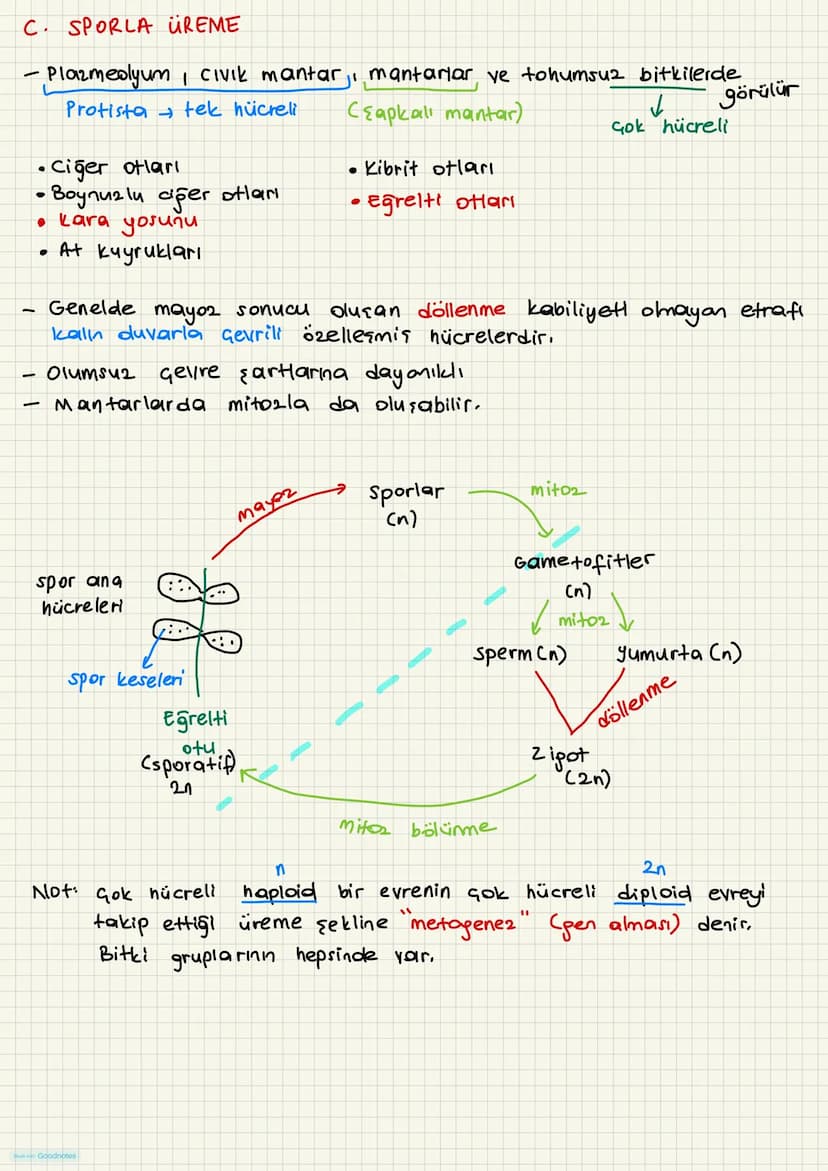 C. SPORLA ÜREME
- Plazmodyum, cıvık mantar, mantarlar ve tohumsuz bitkilerde görülür
Protista → tek hücreli
(Şapkalı mantar)
çok hücreli
• Ciğer otları
• Boynuzlu ciğer otları
• Kara yosunu
• At kuyrukları
• Kibrit otları
• Eğrelti otları
- Genelde mayoz sonucu oluşan döllenme kabiliyeti olmayan etrafı
kalın duvarla çevrili özelleşmiş hücrelerdir.
- Olumsuz çevre şartlarına dayanıklı
- Mantarlarda mitozla da oluşabilir.
mayoz
Sporlar
(n)
mitoz
Gametofitler
(n)
mitoz
sperm (n)
yumurta (n)
döllenme
Zigot
(2n)
mitoz bölünme
spor ana
hücreleri
spor keseleri
Eğrelti
otu
(sporatif)
2n
n
2n
Not: Çok hücreli haploid bir evrenin çok hücreli diploid evreyi
takip ettiği üreme şekline "metagenez" (gen alması) denir.
Bitki gruplarının hepsinde var.
Made with Goodnotes